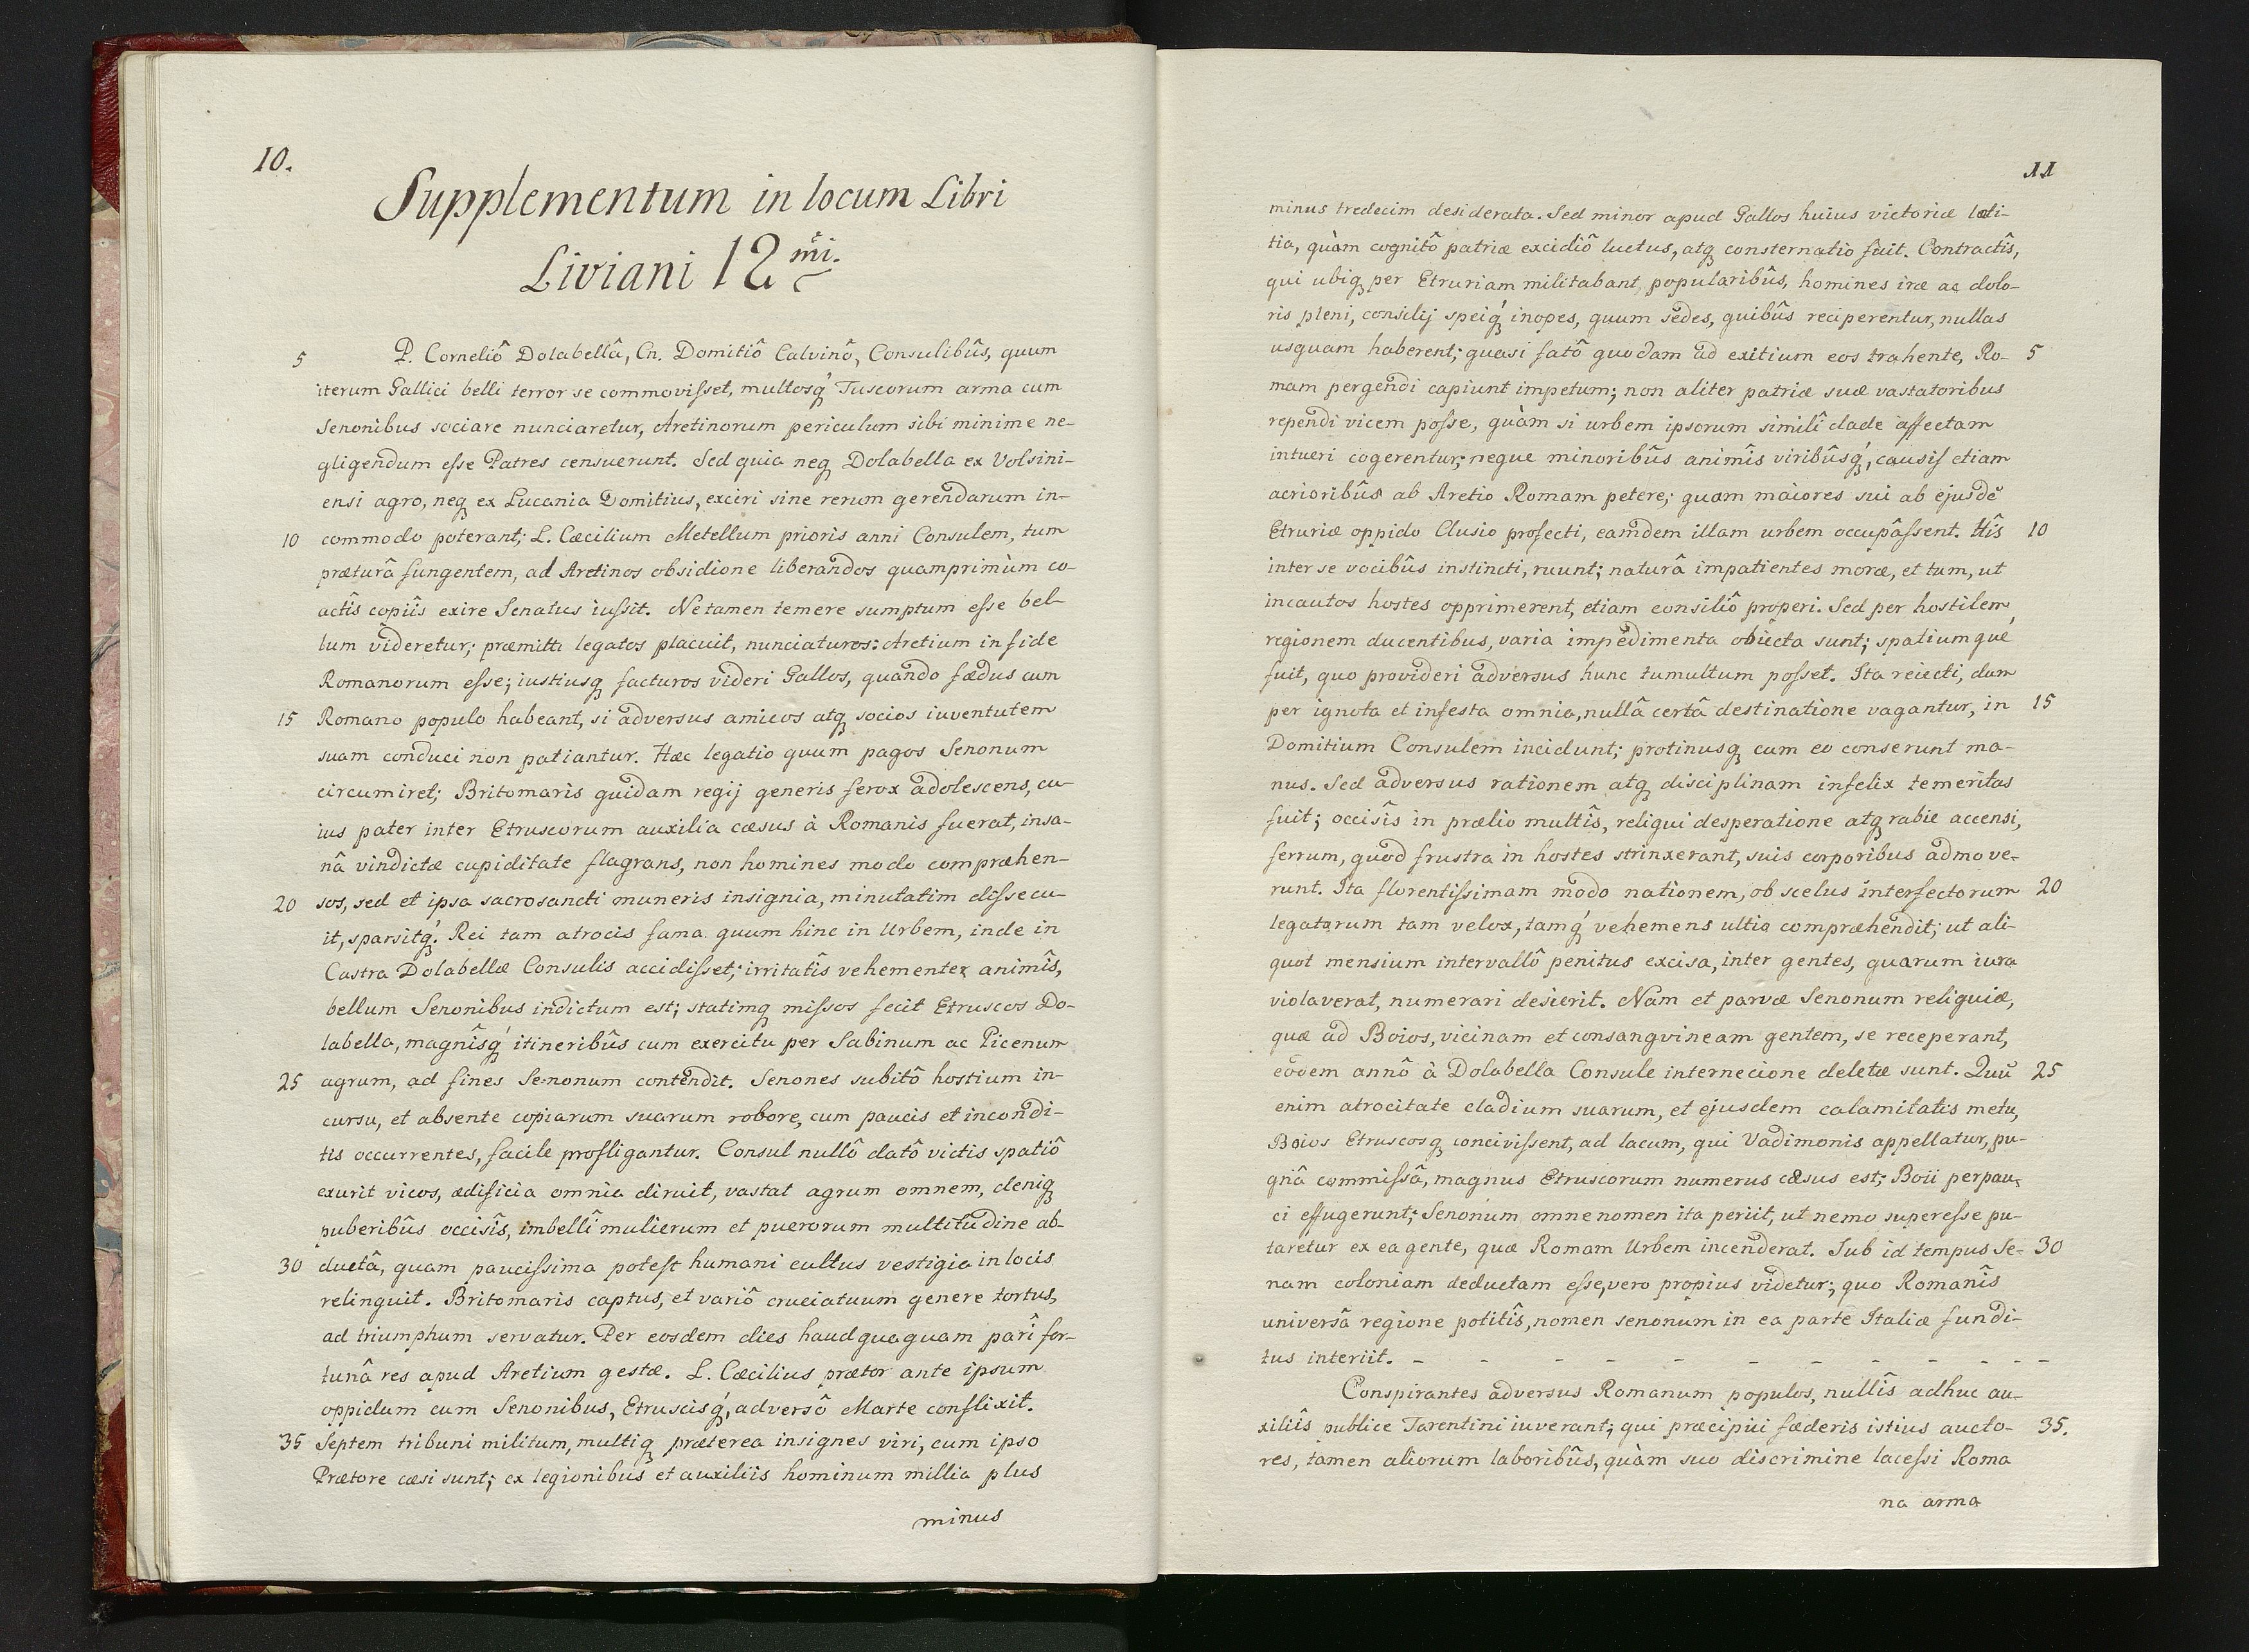 10.
Supplementum in locum Libri
Liviani 12mi.
5 P. Corneliô Dolabellâ, Cn. Domitiô Calvinô, Consulibûs, quum
iterum Gallici belli terror se commovisset, multosq́ Tuscorum arma cum
Senonibus sociare nunciaretur, Aretinorum periculum sibi minime ne-
gligendum esse Patres censuerunt. Sed quia neq Dolabella ex Volsini-
ensi agro, neq ex Lucania Domitius, exciri sine rerum gerendarum in-
10 commodo poterant; L. Cæcilium Metellum prioris anni Consulem, tum
præturâ fungentem, ad Aretinos obsidione liberandos quamprimùm co-
actîs copiîs exire Senatus iussit. Ne tamen temere sumptum esse bel-
lum videretur; præmitti legatos placuit, nunciaturos: Aretium in fide
Romanorum esse; iustiusq facturos videri Gallos, quando fædus cum
15 Romano populo habeant, si adversus amicos atq socios iuventutem
suam conduci non patiantur. Hæc legatio quum pagos Senonum
circumiret; Britomaris quidam regij generis ferox adolescens, cu-
ius pater inter Etruscorum auxilia cæsus à Romanis fuerat, insa-
nâ vindictæ cupiditate flagrans, non homines modo compræhen-
20 sos, sed et ipsa sacrosancti muneris insignia, minutatim dissecu-
it, sparsitq́. Rei tam atrocis fama quum hinc in Urbem, inde in
Castra Dolabellæ Consulis accidisset; irritatîs vehementer animîs,
bellum Senonibus indictum est; statimq missos fecit Etruscos Do-
labella, magnîsq́ itineribûs cum exercitu per Sabinum ac Picenum
25 agrum, ad fines Senonum contendit. Senones subitô hostium in-
cursu, et absente copiarum suarum robore, cum paucis et incondi-
tis occurrentes, facile profligantur. Consul nullô datô victis spatiô
exurit vicos, ædificia omnia diruit, vastat agrum omnem, deniq
puberibûs occisîs, imbellî mulierum et puerorum multitudine ab-
30 ductâ, quam paucissima potest humani cultus vestigia in locis
relinquit. Britomaris captus, et variô cruciatuum genere tortus,
ad triumphum servatur. Per eosdem dies haudquaquam parî for-
tunâ res apud Aretium gestæ. L. Cæcilius prætor ante ipsum
oppidum cum Senonibus, Etruscisq́, adversô Marte conflixit.
35 Septem tribuni militum, multiq præterea insignes viri, cum ipso
Prætore cæsi sunt; ex legionibus et auxiliis hominum millia plus
minus
11
minus tredecim desiderata. Sed minor apud Gallos huius victoriæ læti-
tia, quàm cognitô patriæ excidiô luctus, atq consternatio fuit. Contractîs,
qui ubiq per Etruriam militabant, popularibûs, homines iræ ac dolo-
ris pleni, consilij speiq́ inopes, quum sedes, quibûs reciperentur, nullas
usquam haberent; quasi fatô quodam ad exitium eos trahente, Ro- 5
mam pergendi capiunt impetum; non aliter patriæ suæ vastatoribus
rependi vicem posse, quàm si urbem ipsorum similî clade affectam
intueri cogerentur; neque minoribûs animîs viribûsq́, causis etiam
acrioribûs ab Aretio Romam petere; quam maiores sui ab ejusdẽ
Etruriæ oppido Clusio profecti, eamdem illam urbem occupâssent. Hîs 10
inter se vocibûs instincti, ruunt; naturâ impatientes moræ, et tum, ut
incautos hostes opprimerent, etiam consiliô properi. Sed per hostilem
regionem ducentibus, varia impedimenta obiecta sunt; spatiumque
fuit, quo provideri adversus hunc tumultum posset. Ita reiecti, dum
per ignota et infesta omnia, nullâ certâ destinatione vagantur, in 15
Domitium Consulem incidunt; protinusq cum eo conserunt ma-
nus. Sed adversus rationem atq disciplinam infelix temeritas
fuit; occisîs in prælio multîs, reliqui desperatione atq rabie accensi,
ferrum, quod frustra in hostes strinxerant, suis corporibus admove-
runt. Ita florentissimam modo nationem, ob scelus interfectorum 20
legatorum tam velox, tamq́ vehemens ultio compræhendit; ut ali-
quot mensium intervallô penitus excisa, inter gentes, quarum iura
violaverat, numerari desierit. Nam et parvæ Senonum reliquiæ,
quæ ad Boios, vicinam et consangvineam gentem, se receperant,
eodem annô à Dolabella Consule internecione deletæ sunt. Quũ 25
enim atrocitate cladium suarum, et ejusdem calamitatis metu,
Boios Etruscosq concivissent, ad lacum, qui Vadimonis appellatur, pu-
gnâ commissâ, magnus Etruscorum numerus cæsus est; Boii perpau-
ci effugerunt; Senonum omne nomen ita periit, ut nemo superesse pu-
taretur ex ea gente, quæ Romam Urbem incenderat. Sub id tempus Se- 30
nam coloniam deductam esse, vero propius videtur; quo Romanîs
universâ regione potitîs, nomen senonum in ea parte Italiæ fundi-
tus interiit. - - - - - - - - - - - -
Conspirantes adversus Romanum populos, nullîs adhuc au-
xiliîs publice Tarentini iuverant; qui præcipui fæderis istius aucto- 35.
res, tamen aliorum laboribûs, quàm suo discrimine lacessi Roma
na arma